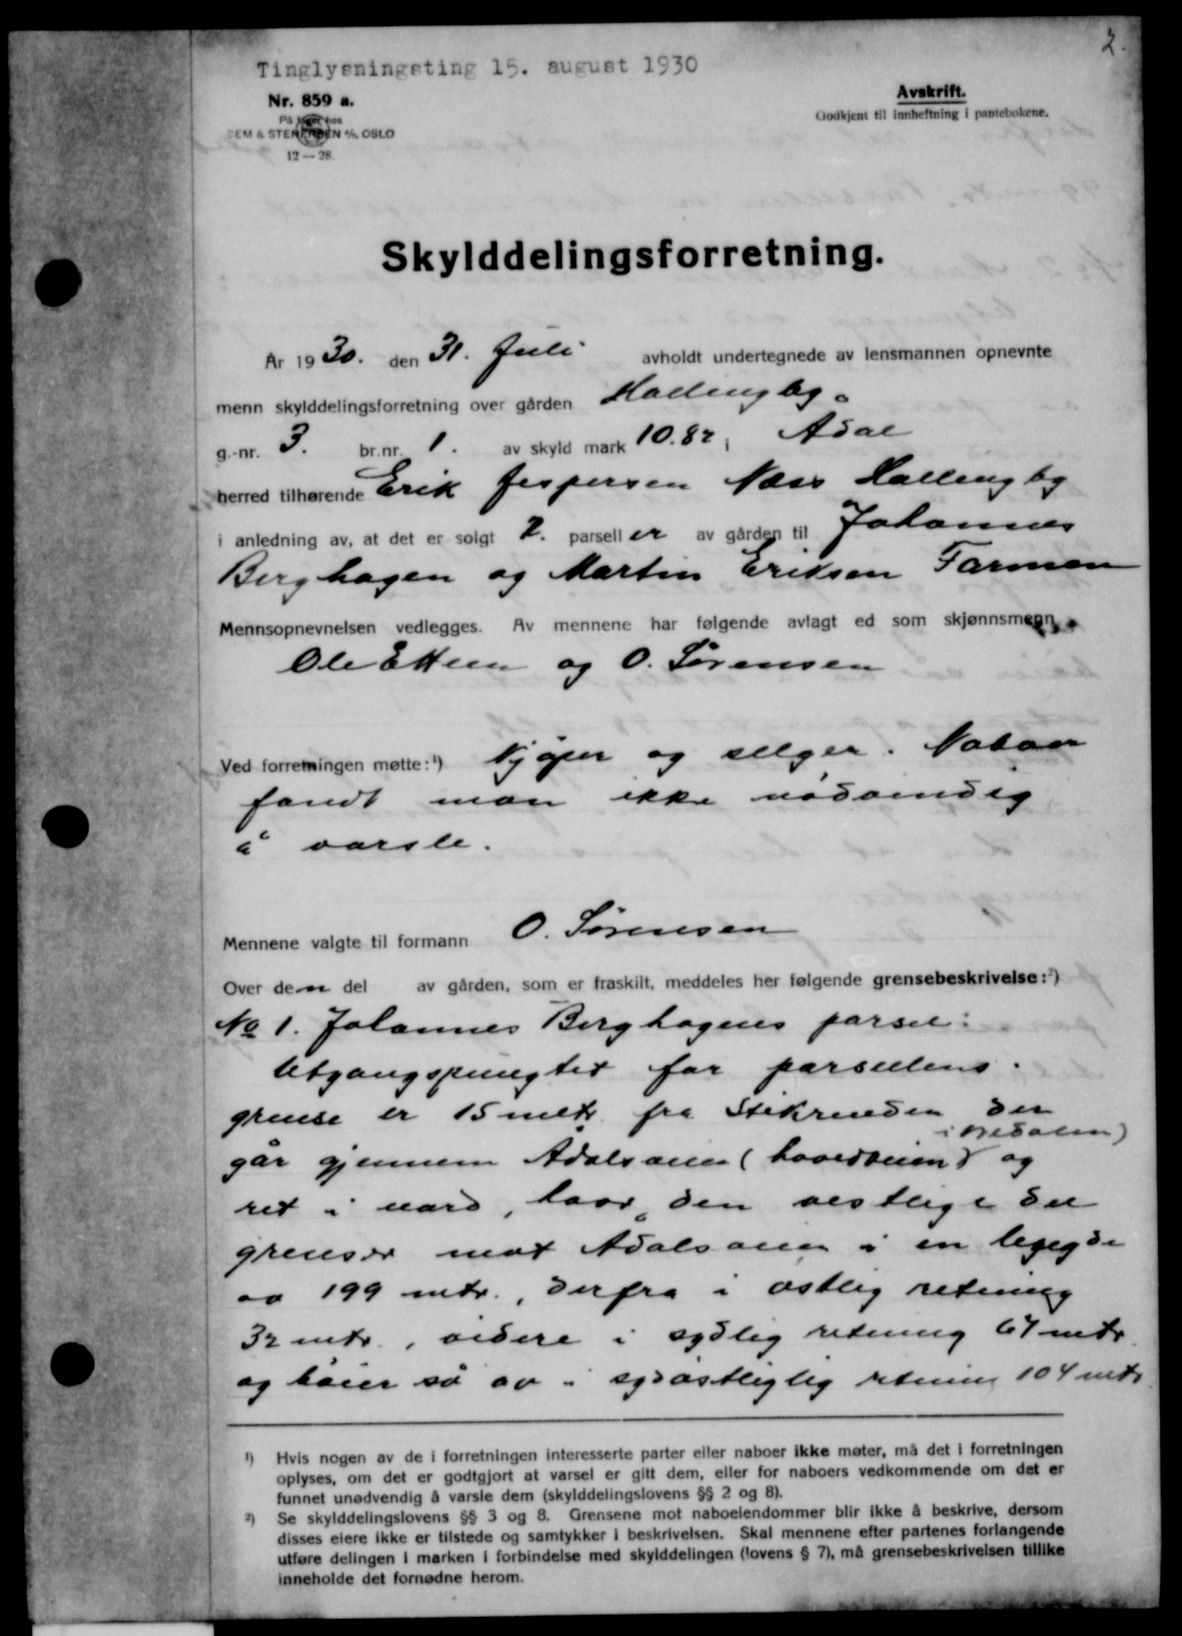 2.
Tinglysningsting 15. august 1930
Nr. 859 a.
På lager hos
SEM & STENERSEN A/S, OSLO
12 — 28.
Avskrift.
Godkjent til innheftning i pantebokene.
Skylddelingsforretning.
År 1930. den 31. Juli avholdt undertegnede av lensmannen opnevnte
menn skylddelingsforretning over gården Hallingby
g.-nr. 3. br.nr. 1. av skyld mark 10.82 i Ådal
herred tilhørende Erik Jespersen Næss Hallingby
i anledning av, at det er solgt 2. parseller av gården til Johannes
Berghagen og Martin Eriksen Farmen
Mennsopnevnelsen vedlegges. Av mennene har følgende avlagt ed som skjønnsmenn
Ole Elteen og O. Sørensen
Ved forretningen møtte:¹) Kjøper og selger. Naboer
fandt man ikke nødvendig
å varsle.
Mennene valgte til formann O. Sørensen
Over den del av gården, som er fraskilt, meddeles her følgende grensebeskrivelse:²)
No 1. Johannes Berghagens parsel:
Utgangspungtet for parsellens
grense er 15 mete fra Stikrenden der
går gjennem Ådalsveien (hovedveien i Bredalen) og
ret i nord, hvor den vestlige del
grenser mot Ådalsveien i en lengde
av 199 mtr., derfra i østlig retning
32 mtr., videre i sydlig retning 67 mtr.
og bøier så av i sydøstliglig retning 104 mtr.
¹) Hvis nogen av de i forretningen interesserte parter eller naboer ikke møter, må det i forretningen
oplyses, om det er godtgjort at varsel er gitt dem, eller for naboers vedkommende om det er
funnet unødvendig å varsle dem (skylddelingslovens §§ 2 og 8).
²) Se skylddelingslovens §§ 3 og 8. Grensene mot naboeiendommer blir ikke å beskrive, dersom
disses eiere ikke er tilstede og samtykker i beskrivelsen. Skal mennene efter partenes forlangende
utføre delingen i marken i forbindelse med skylddelingen (lovens § 7), må grensebeskrivelsen tillike
inneholde det fornødne herom.